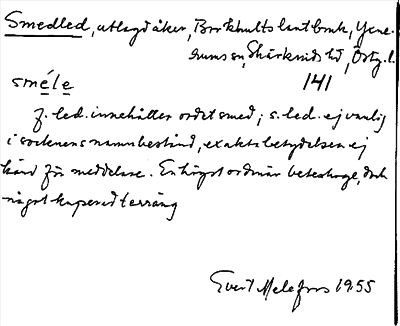 Smedled, utlagd åker, Borkhults lantbruk, Yxne-
rums sn, Skärkinds hd, Östg. l.
sméle 141
f. led. innehåller ordet smed; s. led. ej vanlig
i socknens namnbestånd, exakta betydelsen ej
känd för meddelare. En högst ordinär beteshage, dock
något kuperad terräng
Evert Melefors 1955